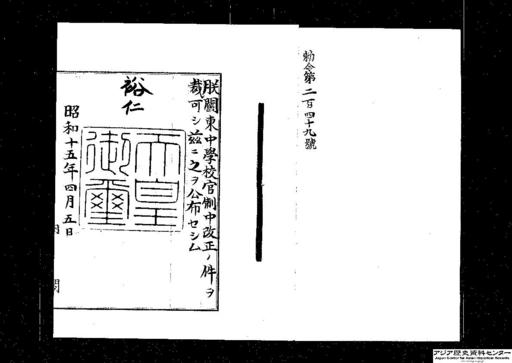 勅令第二百四十九號
朕關東中學校官制中改正ノ件ヲ
裁可シ茲ニ之ヲ公布セシム
裕仁
天皇御璽
昭和十五年四月五日
アジア歴史資料センター
Japan Center for Asian Historical Records